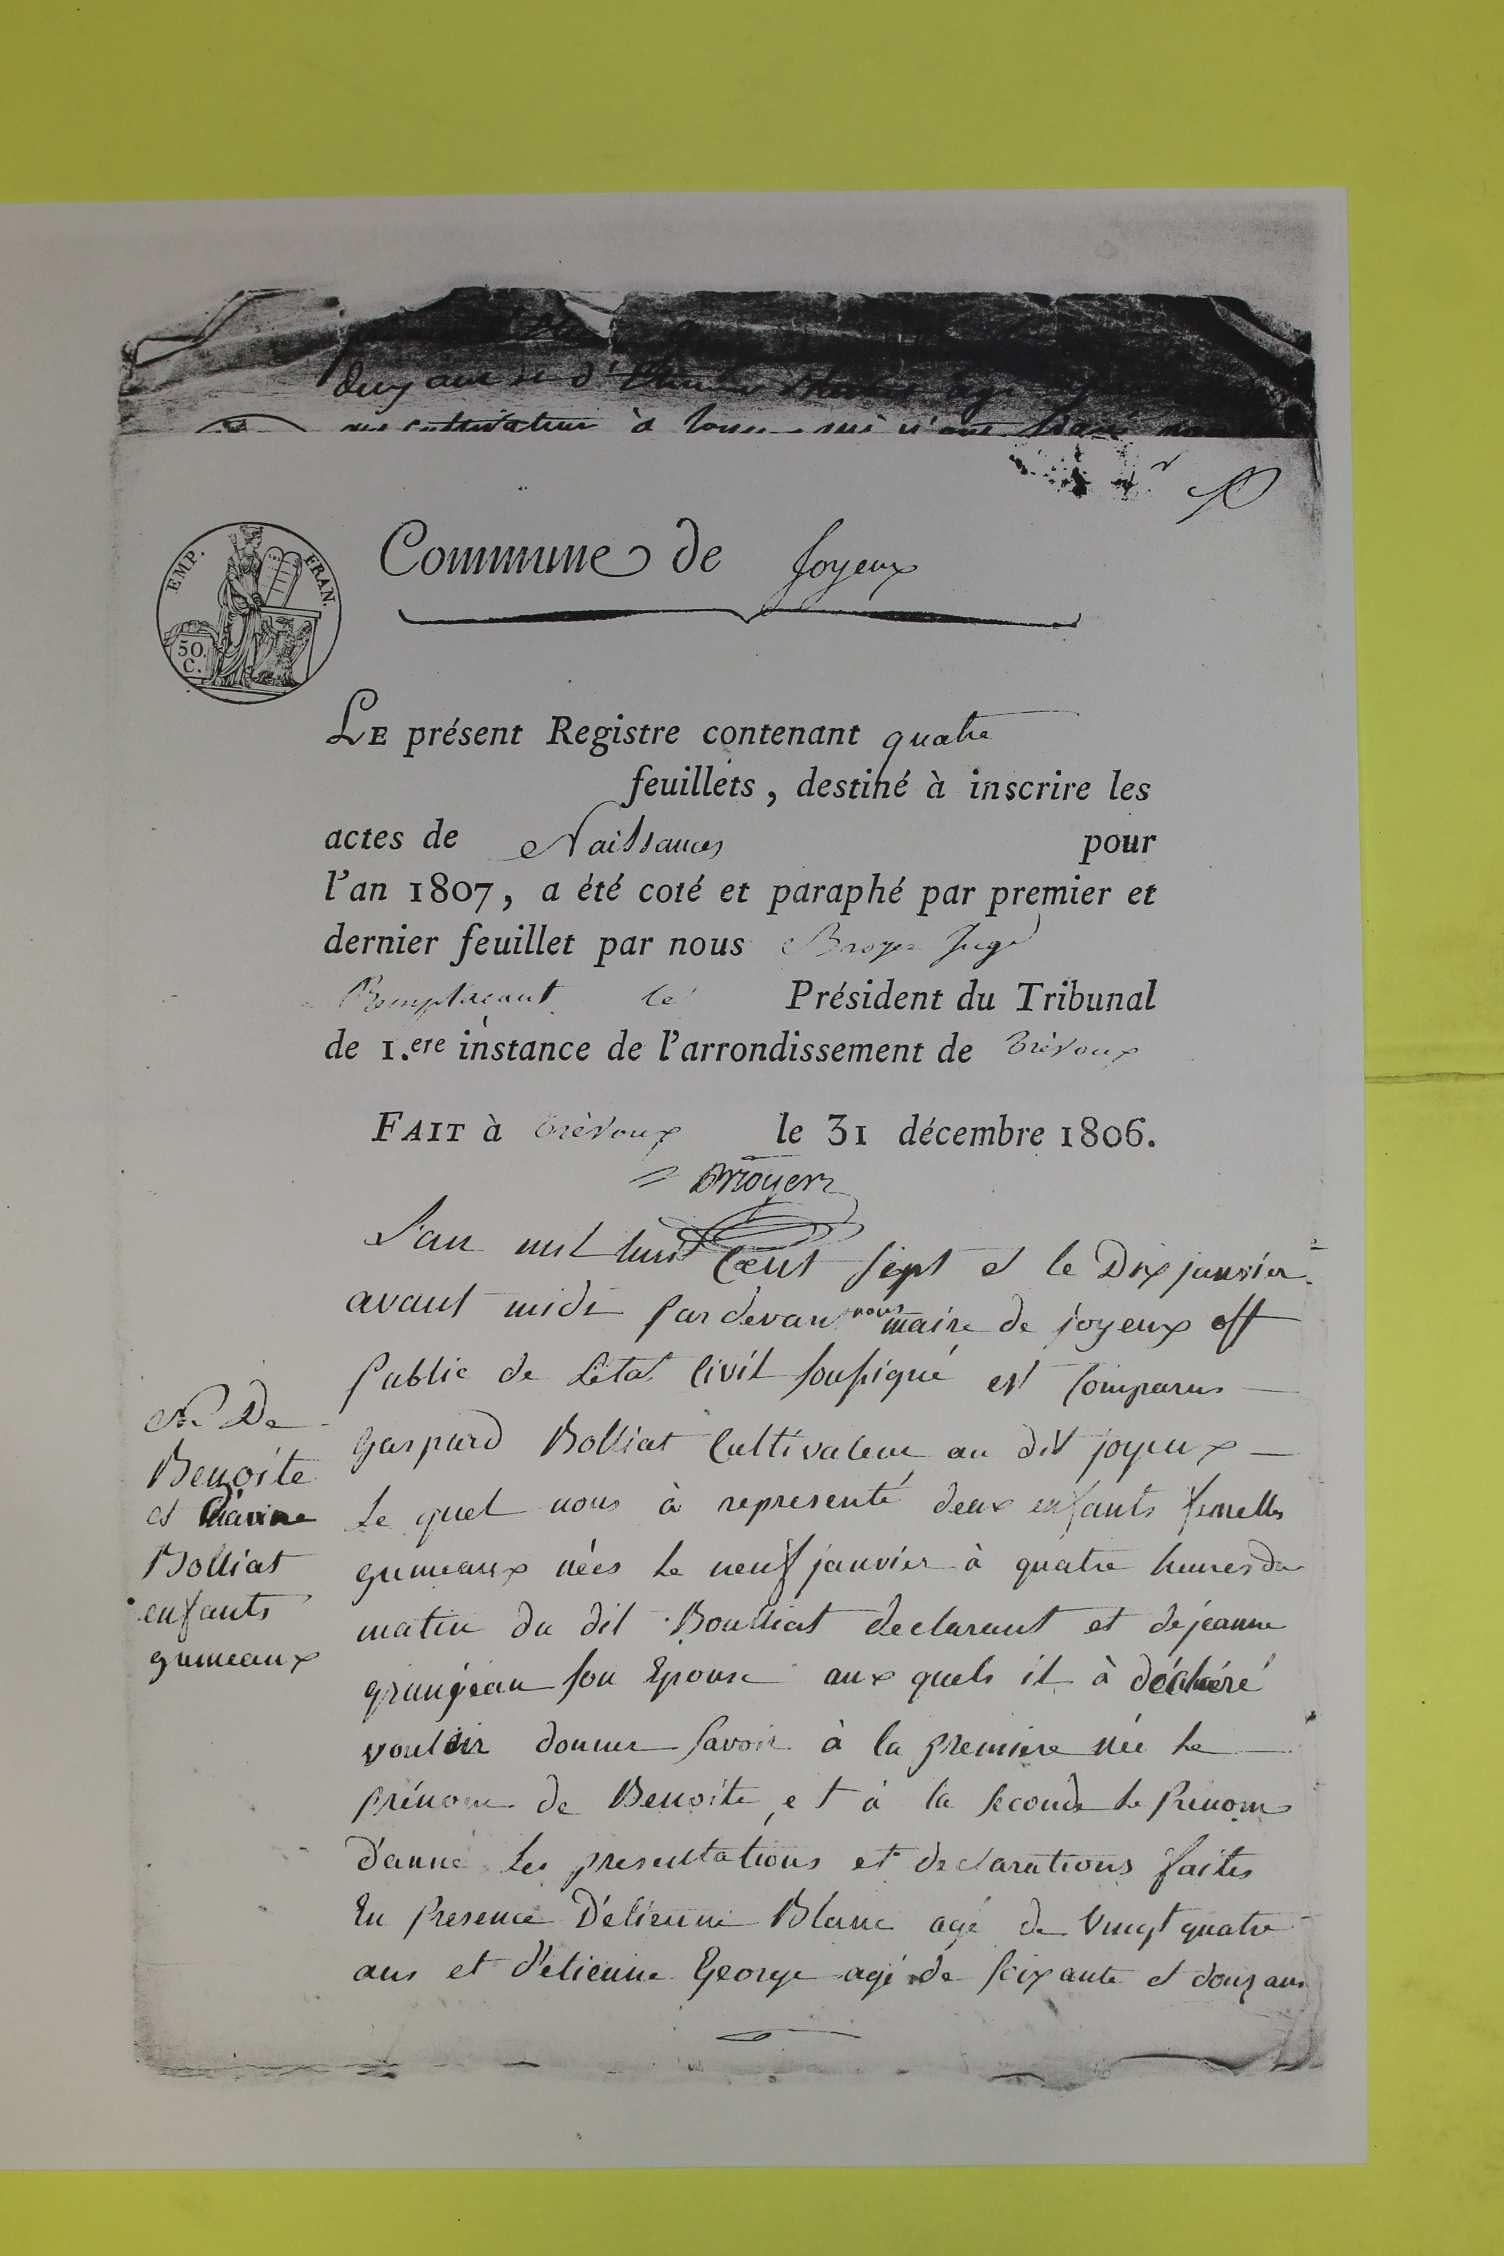 deux ans et d'
cultivateur à
Commune de joyeux
EMP. FRAN.
50.
C.
LE présent Registre contenant quatre
feuillets, destiné à inscrire les
actes de Naissances pour
l'an 1807, a été coté et paraphé par premier et
dernier feuillet par nous Broyer Juge
Remplaçant le Président du Tribunal
de 1.ere instance de l'arrondissement de Trévoux
FAIT à Trévoux le 31 décembre 1806.
Broyer
L'an mil huit Cent sept et le Dix janvier
avant midi par devant nous maire de joyeux off
public de Létat Civil soussigné est Comparus
gaspard Bolliat Cultivateur au dit joyeux
Le quel nous à representé deux enfants femelles
gumeaux nées le neuf janvier à quatre heures du
matin du dit Boulliat declarant et de jeanne
grangéan son Epouse aux quels il à déclaré
vouloir donner savoir à la premiere née le
prénom de Benoite et à la seconde le prénom
D'anne Les presentations et declarations faites
En presence D'étienne Blanc agé de vingt quatre
ans et d'etienne George agé de soixante et douz ans
N. De
Benoite
et
Bolliat
enfants
gumeaux